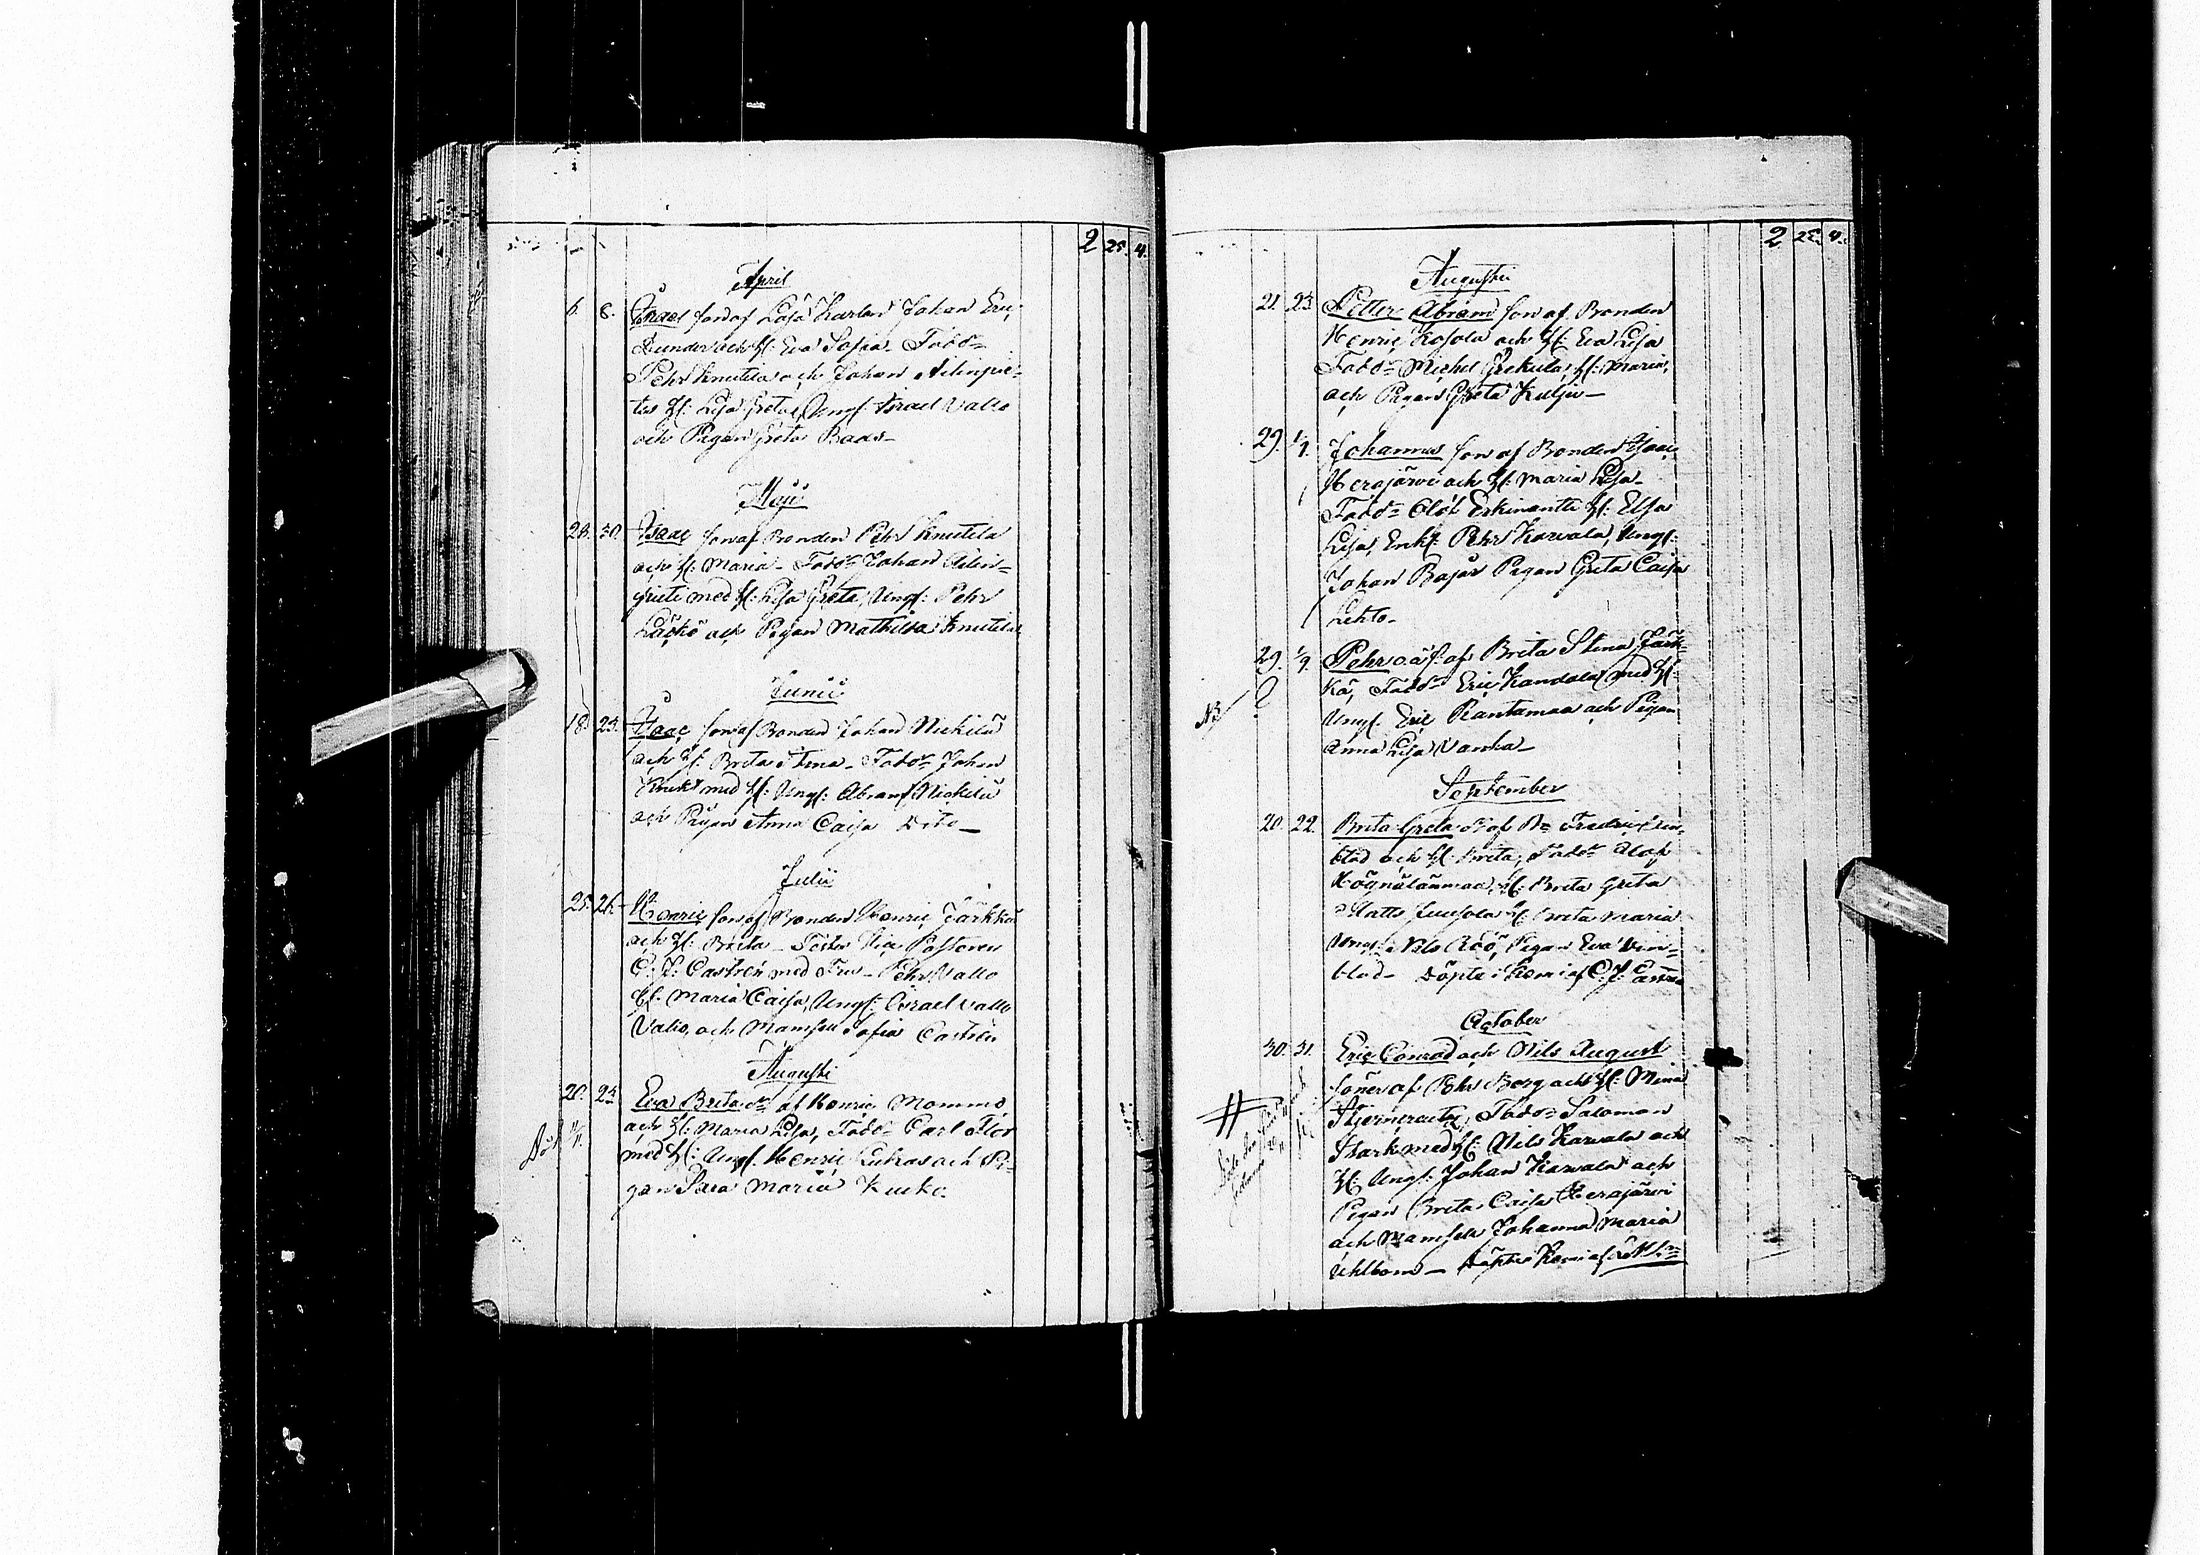 2 25. 4.
April
6. 8. Isaac son af Loja Karlen Johan Eric
Sunder och H: Eva Sofia - Fadd=
Pehr Knutila och Johan Ailinpie=
ti H: Lisa Greta, Ungf: Israel Vallo
och Pigan Greta Baas-
Maji
28. 30. Isaac son af Bonden Pehr Knutila
och H: Maria - Fadd= Johan Ailin=
pieti med H: Lisa Greta, Ungf: Pehr
och Pigan Mathilda Knutila
Junii
18. 23. Isaac son af Bonden Johan Nickilä
och H: Brita Stina - Fadd= Johan
med H: Ungf: Abram Nickilä
och Pigan Anna Caisa Dito-
Julii
25. 26. Henric son af Bonden Henric Järkkä
och H: Brita - Vice Pastoren
C: J: Castrén med Fru - Pehr Vallo
H: Maria Caisa, Ungf: Israel Vallo
Vallo, och Mamsell Sofia Castrén
Augusti
20. 23. Eva Brita dr af Henric Mommo
och H: Maria Lisa, Fadd= Carl
med H: Ungf. Henric Lukas och Pi=
gan Sara Maria Kuko.
Död 11/11.
2 25. 4.
Augusti
21. 23 Petter Abram son af Bonden
Henric Kosola och H: Eva Lisa
Fadd= Michel H: Maria,
och Pigan Greta Kulju-
29. 1/9. Johannes son af Bonden Isaac
Herajärvi och H: Maria Lisa-
Fadd= Olof Erkinantti H: Elsa
Lisa, Enkf: Pehr Karvala, Ungf:
Johan Bajar Pigan Greta Caisa
Lehto-
29. 1/9. Pehr o.ä. s: af Brita Stina Järk=
kä, Fadd= Eric Kandala med H:
NB Ungf. Eric Rantamaa och Pigan
Anna Lisa Vanha-
September
20. 22. Brita Greta dr af Bn Fredric Lin=
blad och H: Brita, Fadd= Olof
H: Brita Greta
Matts Juusola H: Brita Maria
Ungf: Nils Röö, Pigan Eva Lin=
blad- Döpte i Kemi af C. J. Castrén
October
30. 31. Eric Conrad och Nils August
söner af Pehr Borg och H: Mina
Fadd= Salomon
Isark med H: Nils Karvala och
H: Ungf: Johan Karvala och
Pigan Brita Caisa Herajärvi
och Mamsell Johanna Maria
Uhlbom - Döpte i Kemi af